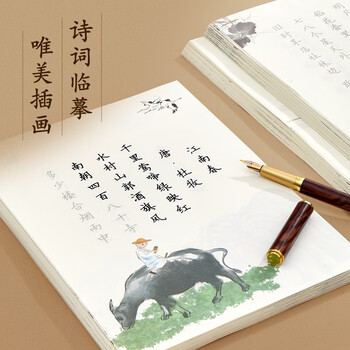 诗词临摹
唯美插画
江南春
唐·杜牧
千里莺啼绿映红
水村山郭酒旗风
南朝四百八十寺
多少楼台烟雨中